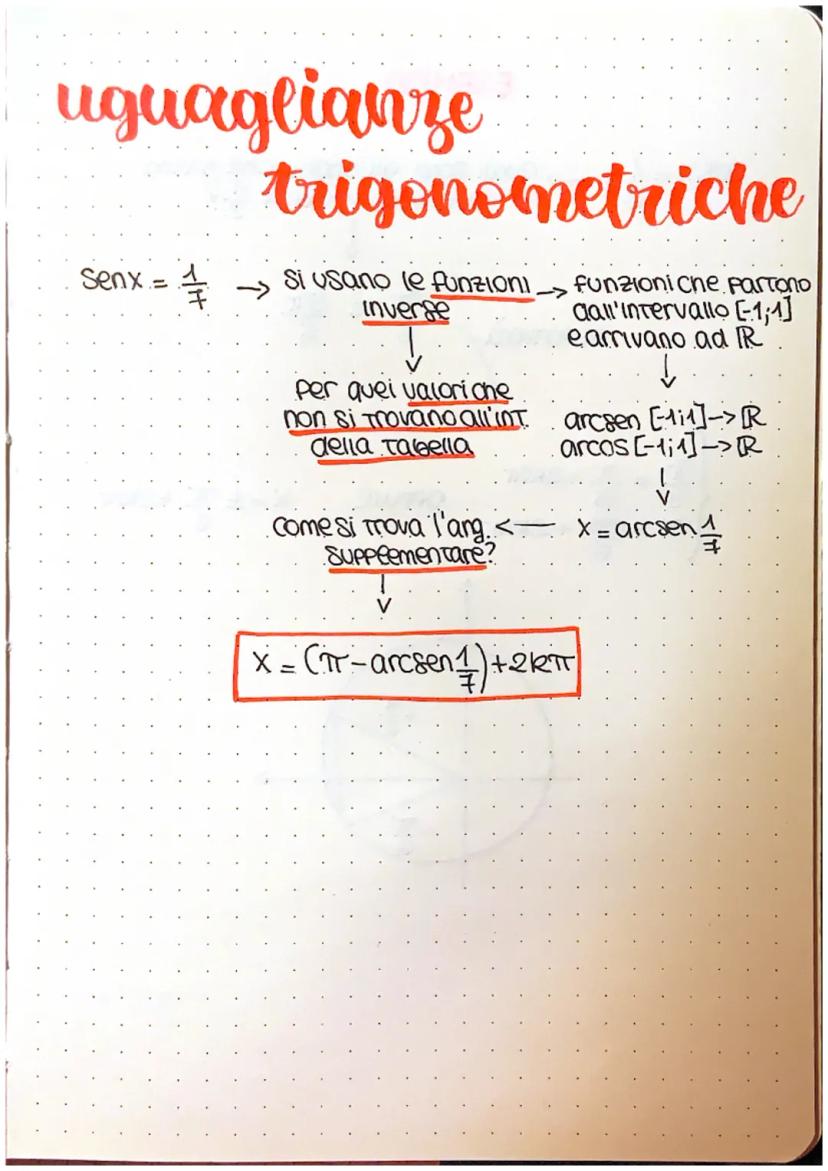 uguaglianze
trigonometriche
senx = 1/7 → si usano le funzioni → funzioni che partono
inverse
dall'intervallo [-1;1]
e arrivano ad ℝ
↓
↓
per quei valori che
non si trovano all'int.
della tabella
arcsen [-1;1] -> ℝ
arcos [-1;1] -> ℝ
↓
come si trova l'ang. <— x = arcsen 1/7
supplementare?
↓
x = (π - arcsen 1/7) + 2kπ